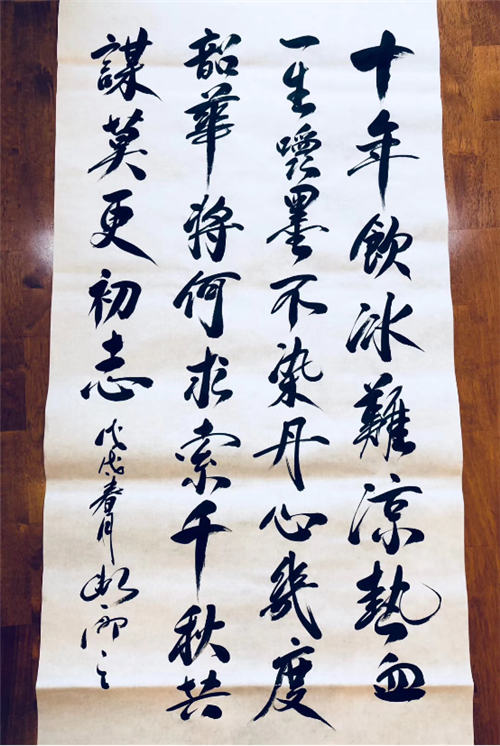 十年飲冰難涼熱血
一生噀墨不染丹心幾度
韶華將何求索千秋共
謀莫更初志
戊戌春月